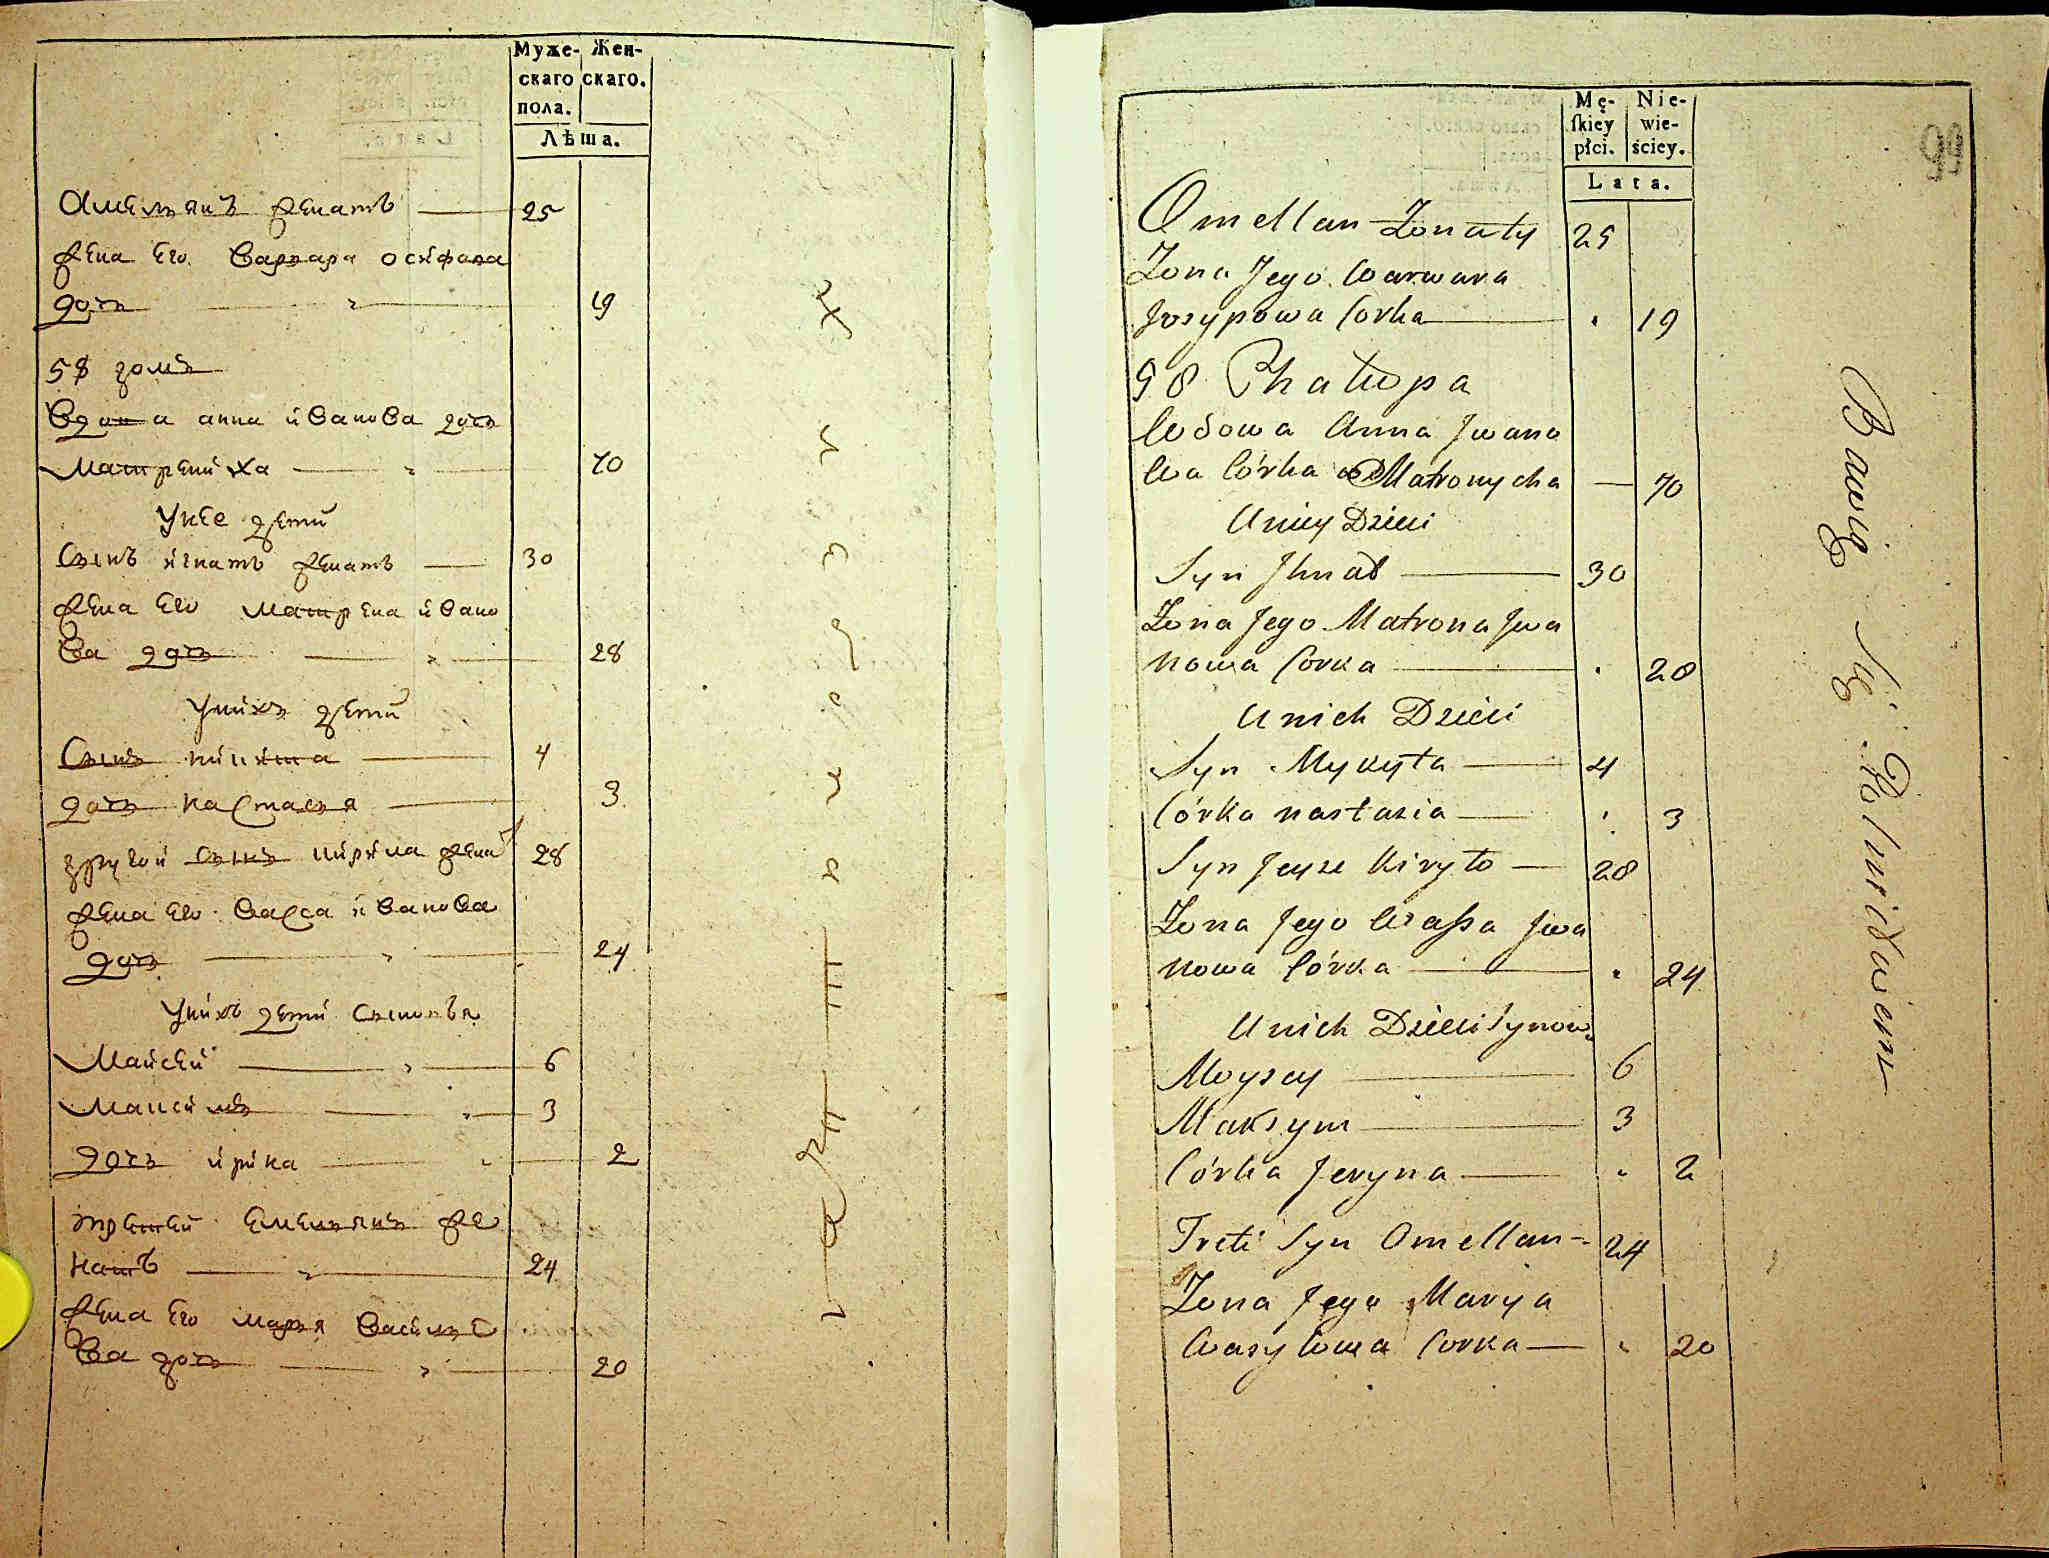 Муже- Жен-
скаго скаго.
пола.
Лѣта.
Амельянъ женатъ 25
жена Его Варвара осифава
дочь 19
58 домъ
Вдова анна иванова дочь
Матрениха 70
У нее дети
Сынъ игнатъ женатъ 30
жена Его Матрена ивано
ва дочь 28
У нихъ дети
Сынъ никита 4
дочь настасья 3
другой сынъ кирила женат 28
жена Его Васса иванова
дочь 24
У нихъ дети сыновья
Майсей 6
Максимъ 3
дочь ирина 2
третей Емельянъ же
натъ 24
жена Его марья Василье
ва дочь 20
Mę- Nie-
skiey wie-
płci. ściey.
Lata.
99
Omellan Żonaty 25
Żona Jego Warwara
Josypowa Corka 19
58 Chałupa
Wdowa Anna Jwano
wa Córka Matronycha 70
U niey Dzieci
Syn Jhnat 30
Żona Jego Matrona Jwa
nowa Corka 28
U nich Dzieci
Syn Mykyta 4
Córka nastazia 3
Syn Jeysze Kiryło 28
Żona Jego Wassa Jwa
nowa Córka 24
U nich Dzieci Synow
Moysey 6
Maksym 3
Córka Jeryna 2
Treti Syn Omellan 24
Żona Jego Marya
Wasylowa Corka 20
Bawią Się Rolnictwem